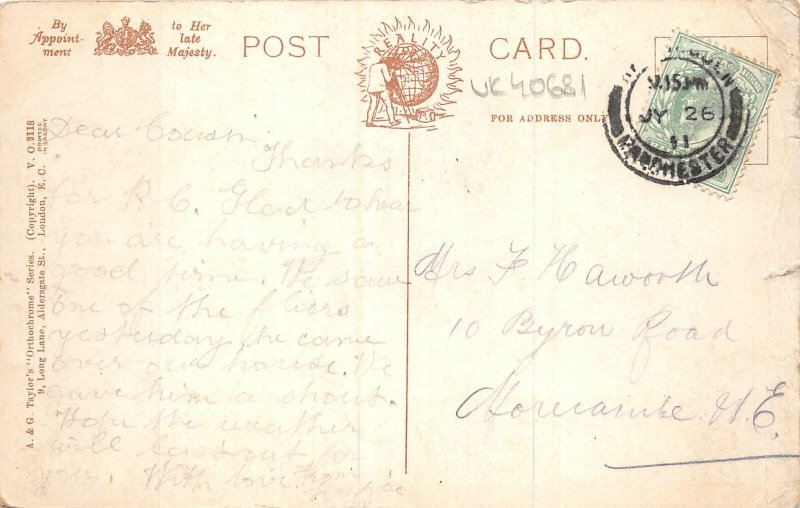 By
Appoint-
ment
to Her
late
Majesty.
POST
REALITY
CARD.
UK40681
FOR ADDRESS ONLY
JY 26
11
MANCHESTER
A. & G. Taylor's "Orthochrome" Series. (Copyright). V. O. 3118
PRINTED
IN SAXONY
9, Long Lane, Aldersgate St., London, E. C.
Dear Cousin
Thanks
for P.C. Glad to hear
you are having a
good time. We saw
one of the fliers
yesterday he came
over our house. We
gave him a shout.
Hope the weather
will last out for
you. With love from
Mrs F Haworth
10 Byron Road
Morecambe. W.E.